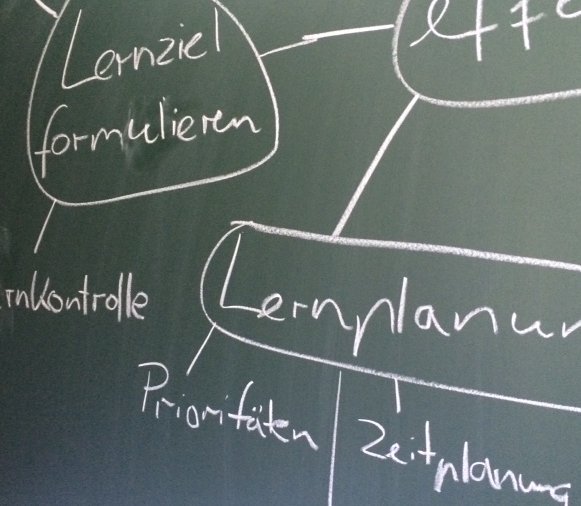 Lernziel
formulieren
effe
rnkontrolle
Lernplanun
Prioritäten
Zeitplanung